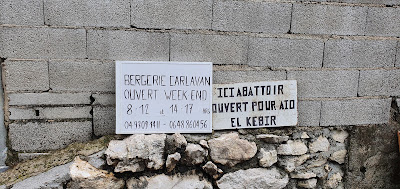 BERGERIE CARLAVAN
OUVERT WEEK-END
8-12 et 14-17
ICI ABATTOIR
OUVERT POUR AID
EL KEBIR